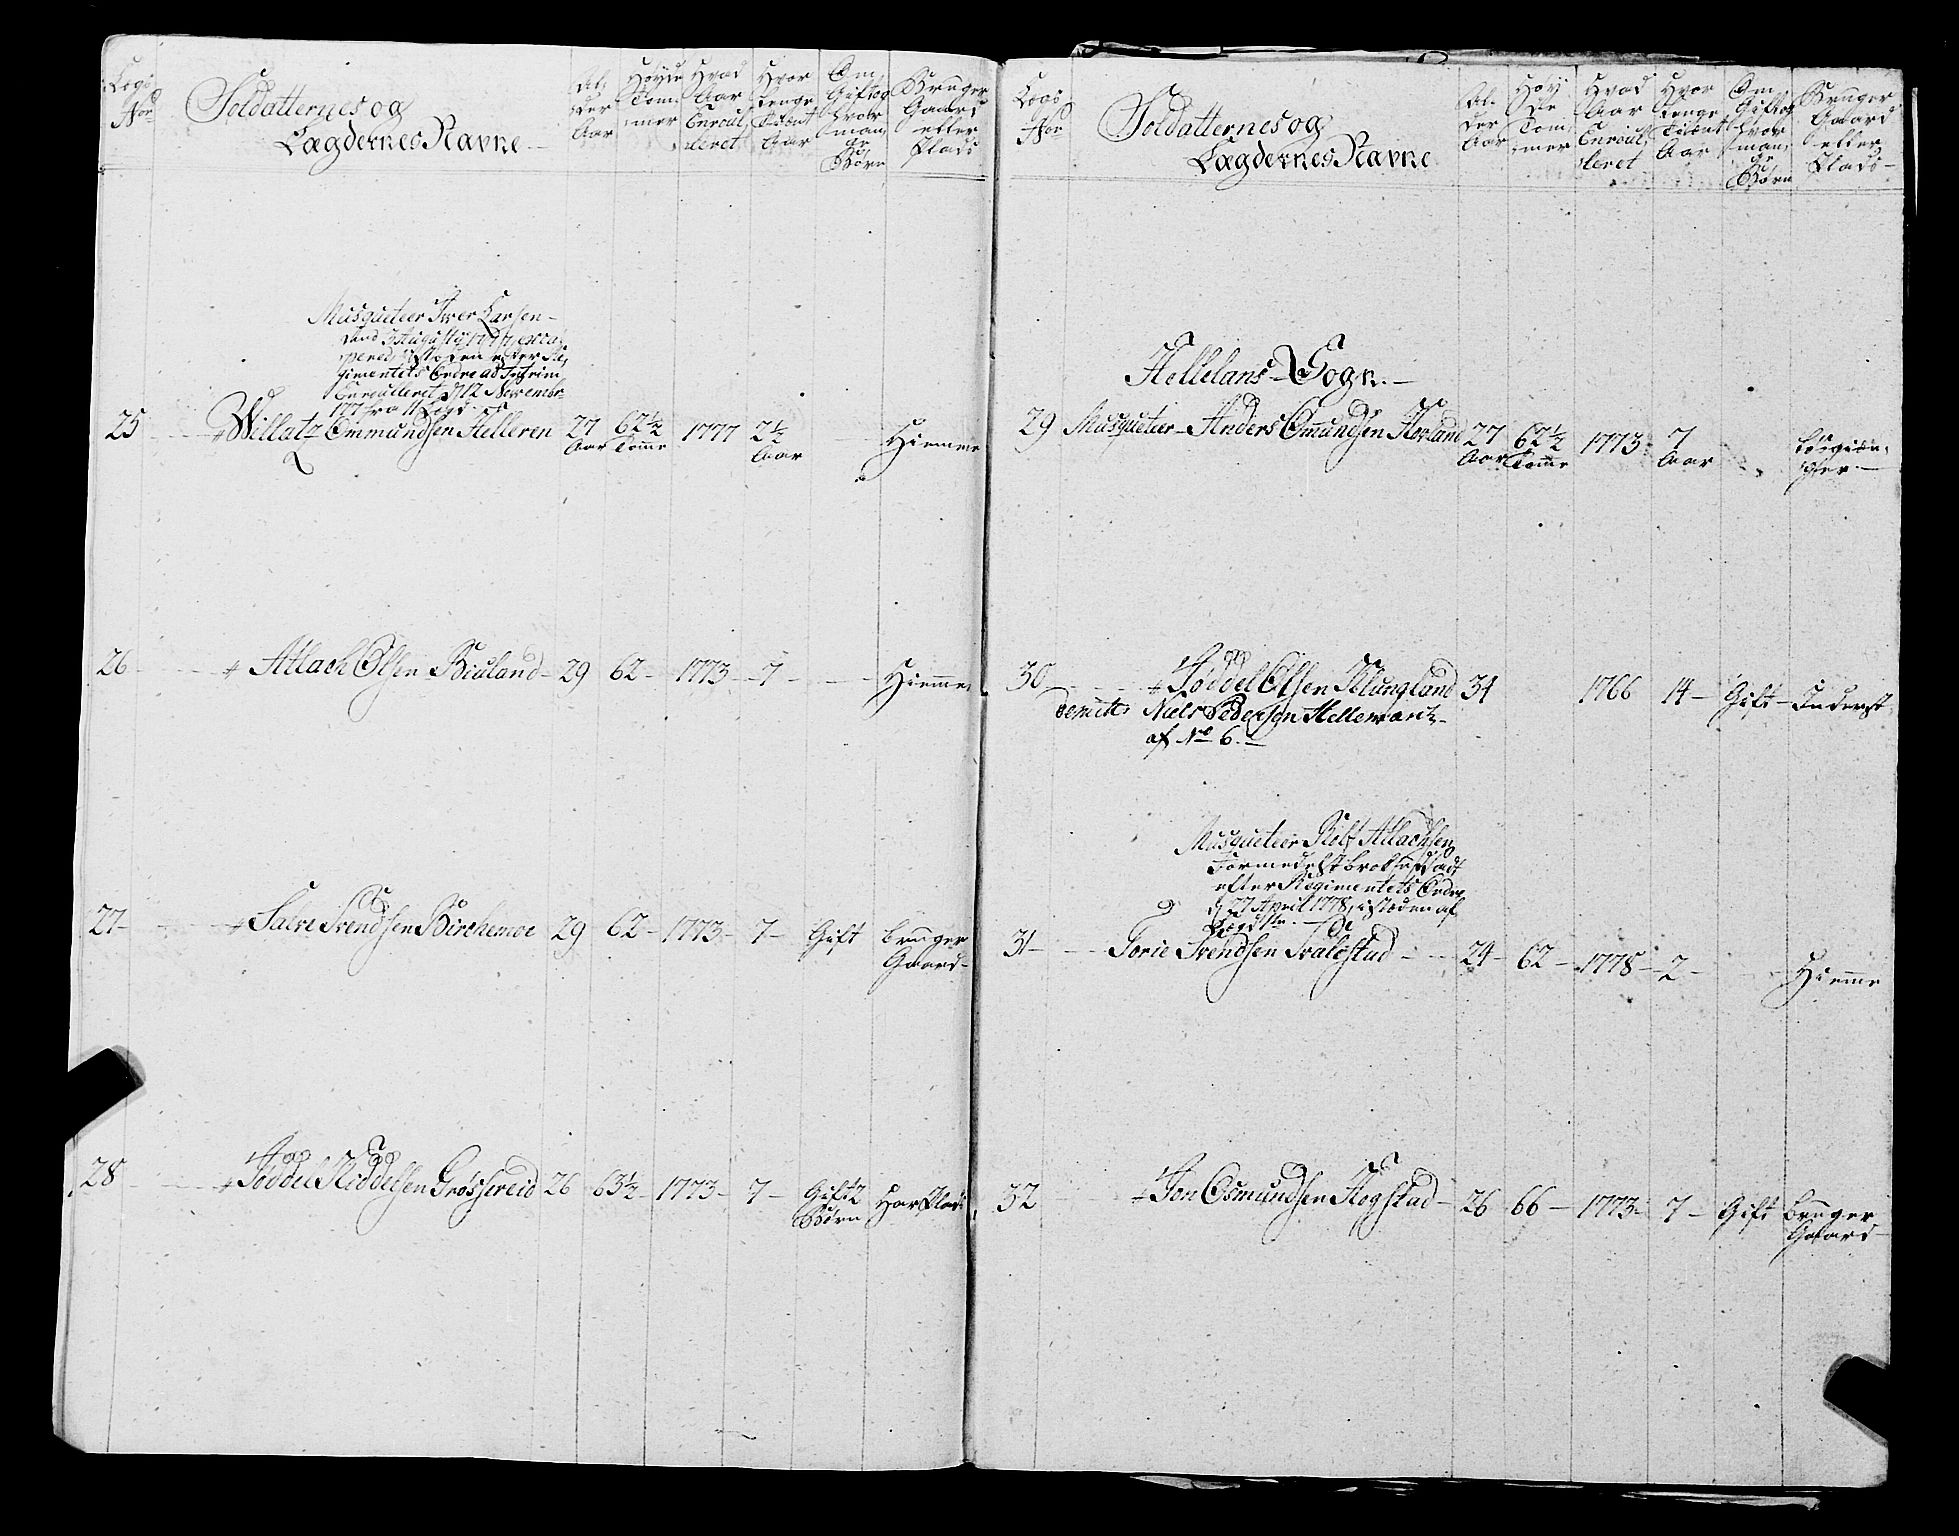 Legs Nor
Soldatternes og
Lægdernes Navne
Al= der Aar
Høyde Tom= mer
Hvad Aar Enroul= leret
Hvor lenge Tient Aar
Om Gift og hvor man= ge Børn
Bruger Gaard eller Plads
Musqueteer Iver Larsen
dend 3 Augusty
i Stæden efter Re=
gimentets Ordre ad Intrim
Enroulleret d 12 Novembr
fra 11 Legd
25 Willatz Ommundsen Helleren 27 62½ 1777 2½ Hiemme
Aar Tomme Aar
26 Atlach Olsen Biuland 29 62 1773 7 Hiemme
27 Salve Svendsen Birchemoe 29 62 1773 7 Gift bruger
Gaard
28 Joddel Reddelsen Grøssereid 26 63½ 1773 7 Gift 2 Har Plads
Børn
Legs Nor
Soldatternes og
Lægdernes Navne
Al= der Aar
Høy de Tom= mer
Hvad Aar Enroul= leret
Hvor lenge Tient Aar
Om Gift og hvor man= ge Børn
Bruger Gaard eller Plads
Hellelans Sogn
29 Musqueteer Anders Omundsen Hovland 27 62½ 1773 7 Løsgien=
Aar Tomme Aar ger
30 Joddel Olsen Klungland 34 1766 14 Gift Inderst
Niels Pedersen Hellevantz
af No 6
Musqueteer Rolf Atlachsen
Formedelst brok
efter Regimentets Ordre
d 27 April 1778, i Stæden af
Legd
31 Torie Svendsen Svalestad 24 62 1778 2 Hieme
32 Jon Osmundsen Hogstad 26 66 1773 7 Gift bruger
Gaard